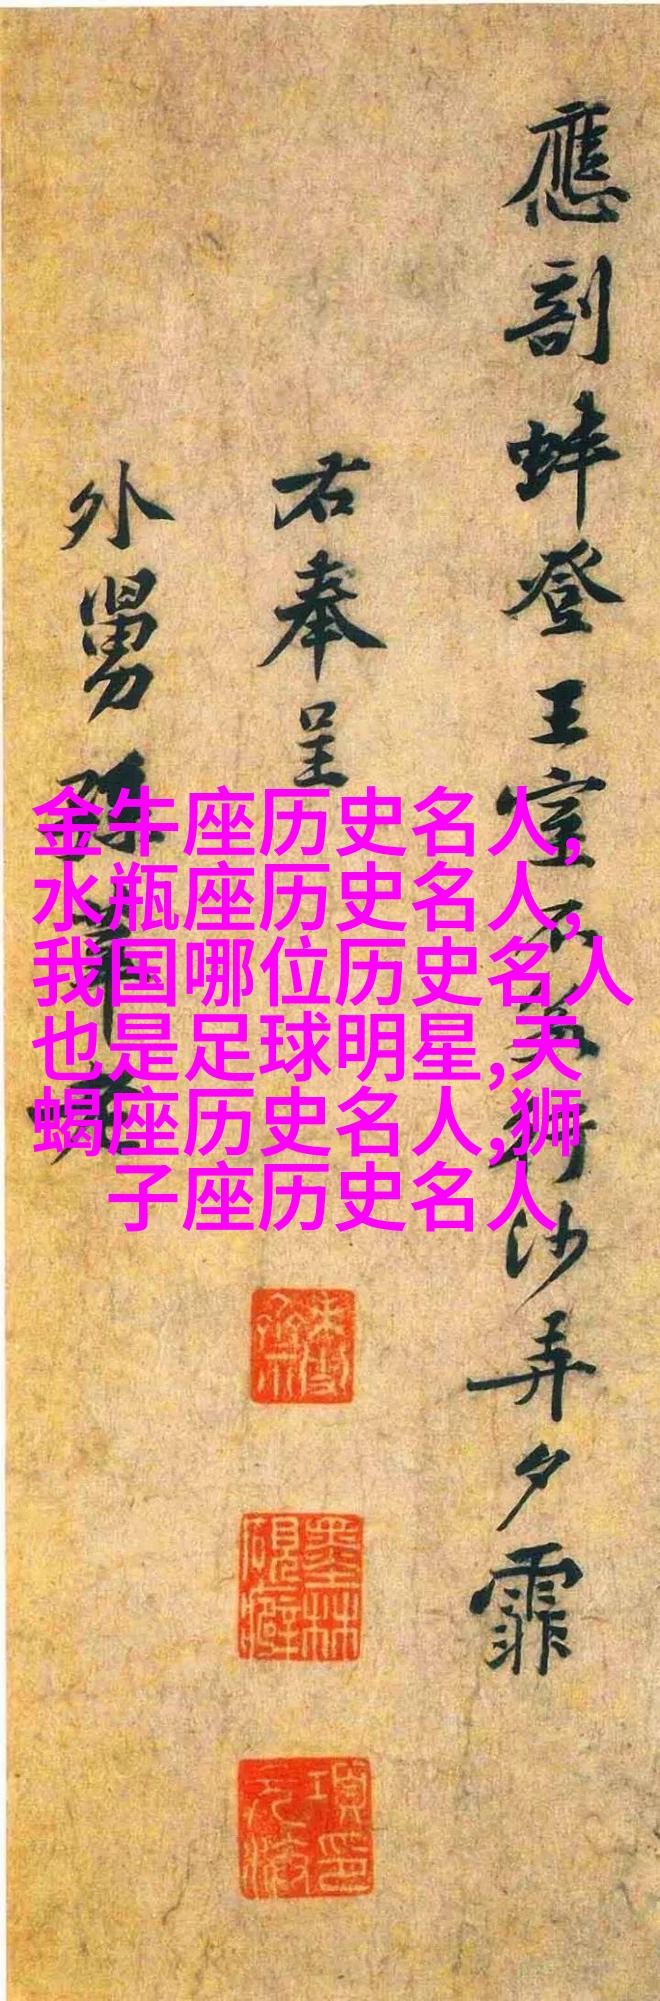 應剖蚌登王室不行沙弄夕霏
右奉呈
外舅孫莘老
金牛座历史名人,
水瓶座历史名人,
我国哪位历史名人
也是足球明星,天
蝎座历史名人,狮
子座历史名人
墨林
硯癖
項印
元汴